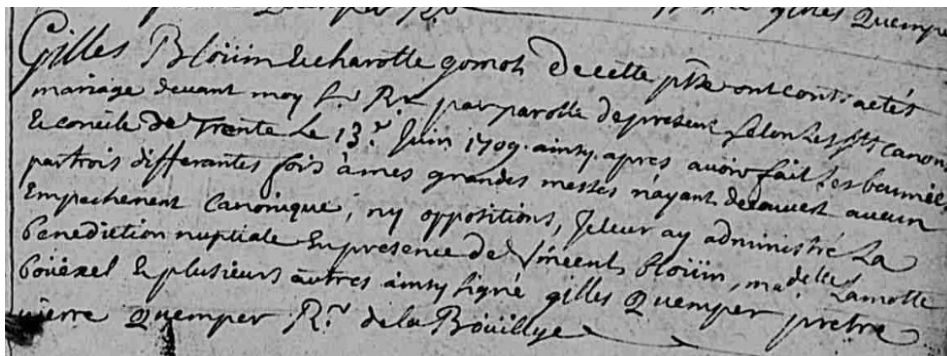 Quemper
gilles Quemper
Gilles Bloüim & charotte gomot De cette psse ont contractés
mariage devant moy Sr Rr par parolle de present selon Les Sts canon
& concile de Trente Le 13r Juin 1709. ainsy apres avoir fait Les bannies
par trois differantes fois à mes grandes messes n'ayant decouvert aucun
Empechement canonique, ny oppositions, Je leur ay administré La
benediction nuptiale En presence de Vincent bloüim, madelle Lamotte
boüexel & plusieurs autres ainsy signé gilles Quemper pretre
pierre Quemper Rr de la Boüillye